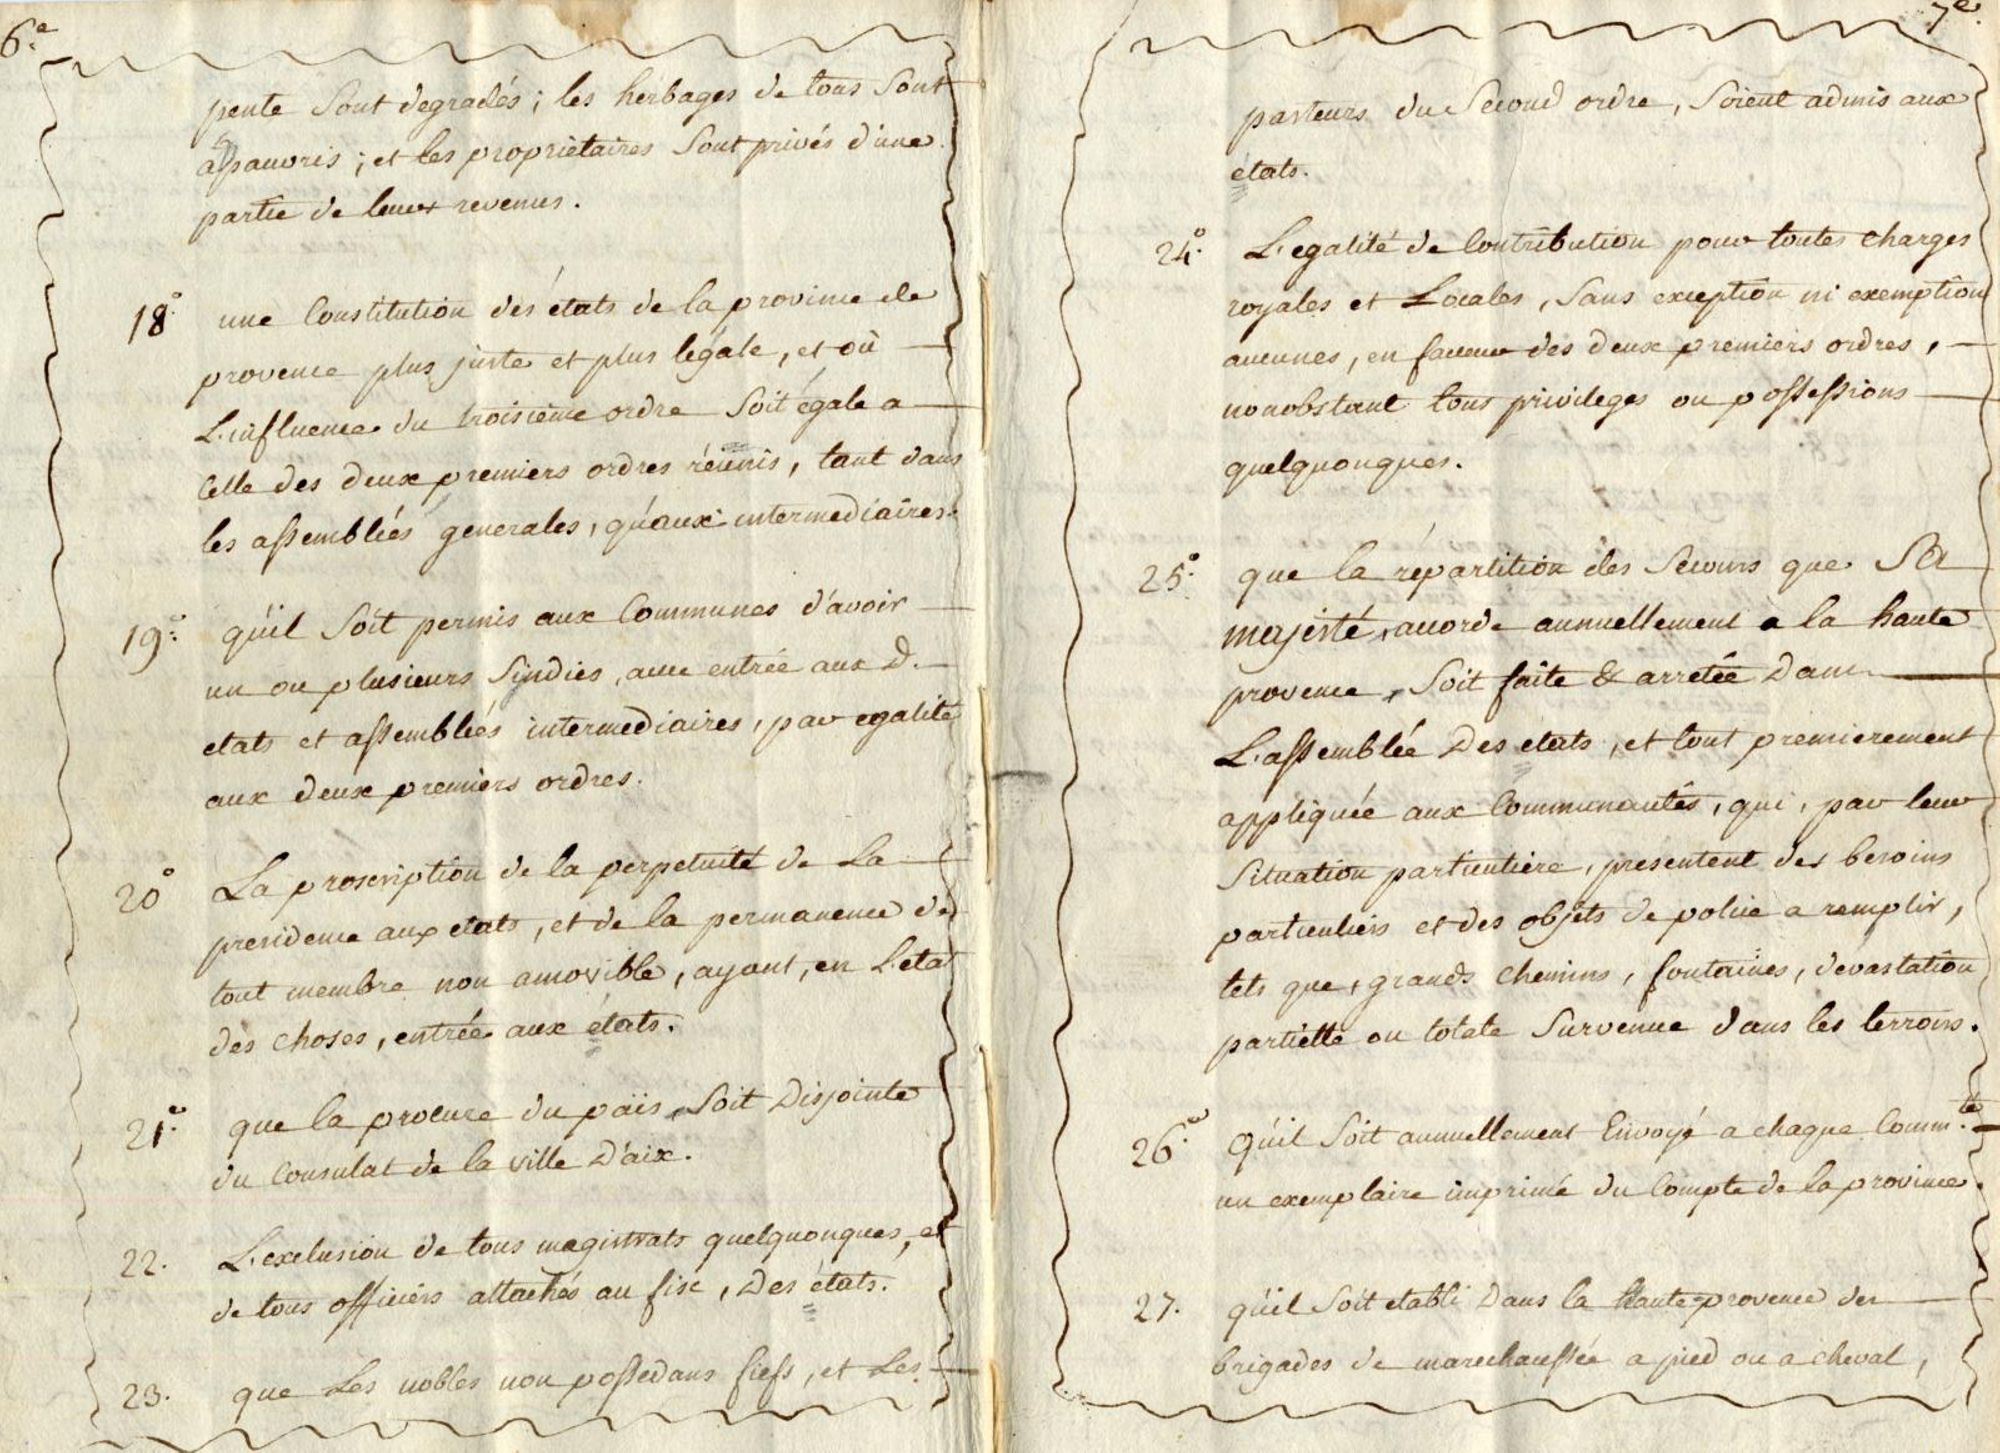 6.e
pente Sont degradés; les herbages de tous Sont
apauvris; et les proprietaires Sont privés d'une
partie de leurs revenus.
18° une Constitution des états de la province de
provence plus juste et plus légale, et où
L'influence du troisième ordre Soit égale a
Celle des deux premiers ordres réunis, tant dans
les assembléés generales, qu'aux intermediaires.
19° qu'il Soit permis aux Communes d'avoir
un ou plusieurs Sindics, avec entrée aux d.
etats et assembléés intermediaires, par egalité
aux deux premiers ordres.
20° La proscription de la perpetuité de La
presidence aux etats, et de la permanence de
tout membre non amovible, ayant, en L'etat
des choses, entrée aux états.
21° que la procure du païs, Soit Disjointe
du Consulat de la ville D'aix.
22. L'exclusion de tous magistrats quelquonques, et
de tous officiers attachés au fisc, Des états.
23. que Les nobles non possedans fiefs, et Les
7e.
pasteurs du Second ordre, Soient admis aux
états.
24° L'egalité de Contribution pour toutes charges
royales et Locales, Sans exception ni exemption
aucunes, en faveur des deux premiers ordres,
nonobstant tous privileges ou possessions
quelquonques.
25° que la répartition des Secours que Sa
majesté, accorde annuellement a la haute
provence, Soit faite & arretée Dans
L'assemblée Des etats, et tout premierement
appliquée aux Communautés, qui, par leur
Situation particuliere, presentent des besoins
particuliers et des objets de police a remplir,
tels que, grands chemins, fontaines, dévastation
partielle ou totale Survenue dans les terroirs.
26° Qu'il Soit annuellement Envoyé a chaque Comm.té
un exemplaire imprimé du Compte de la province.
27. qu'il Soit etabli Dans la haute-provence des
brigades de marechaussée a pied ou a cheval,